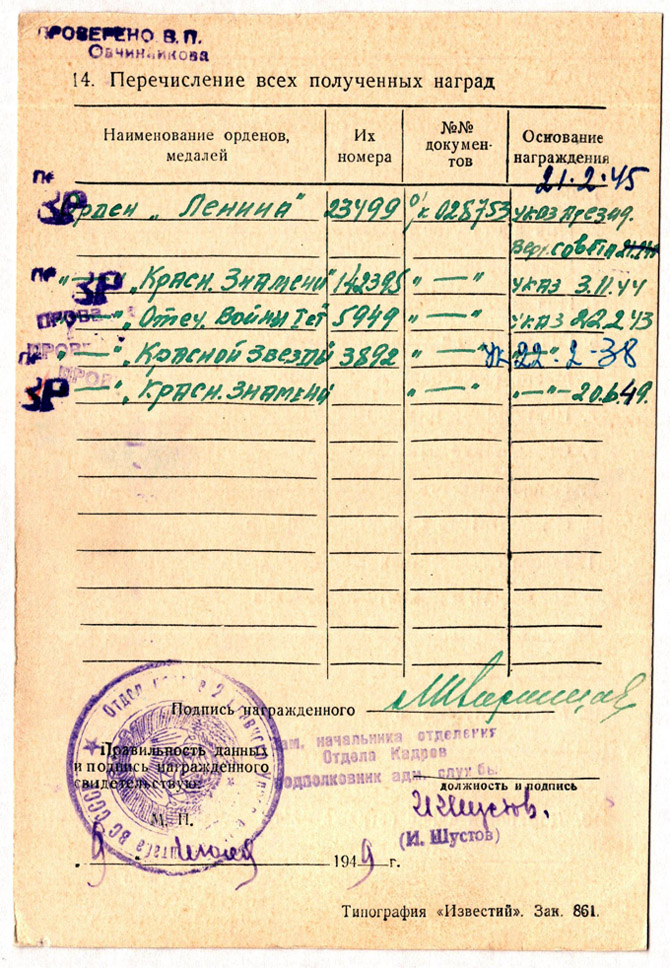 ПРОВЕРЕНО В. П.
Овчинникова
14. Перечисление всех полученных наград
Наименование орденов, медалей
Их номера
№№ документов
Основание награждения
21·2·45
Пр
ЗР
Орден „Ленина" 23499 о/к 028753 Указ През ид.
Верх. Сов от 21.2.45
Пр
ЗР
„—" „Красн. Знамени" 142395 „—" Указ 3.11.44
ПРОВЕ
„—" „Отеч. Войны Iст" 5949 „—" Указ 22.2.43
ПРОВ
Пр
„—" „Красной Звезды" 3892 „—" Ук 22·2-38
ПРОВ
ЗР
„—" „Красн. Знамени" „—" „—" 20.6.49.
Подпись награжденного
Правильность данных
и подпись награжденного
свидетельствую:
Зам. начальника отделения
Отдела Кадров
подполковник адм. службы
должность и подпись
И Шустов.
(И. Шустов)
М. П.
9 июля 1949 г.
Типография «Известий». Зак. 861.